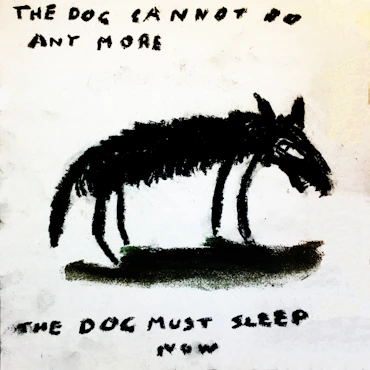 THE DOG CANNOT DO
ANY MORE
THE DOG MUST SLEEP
NOW